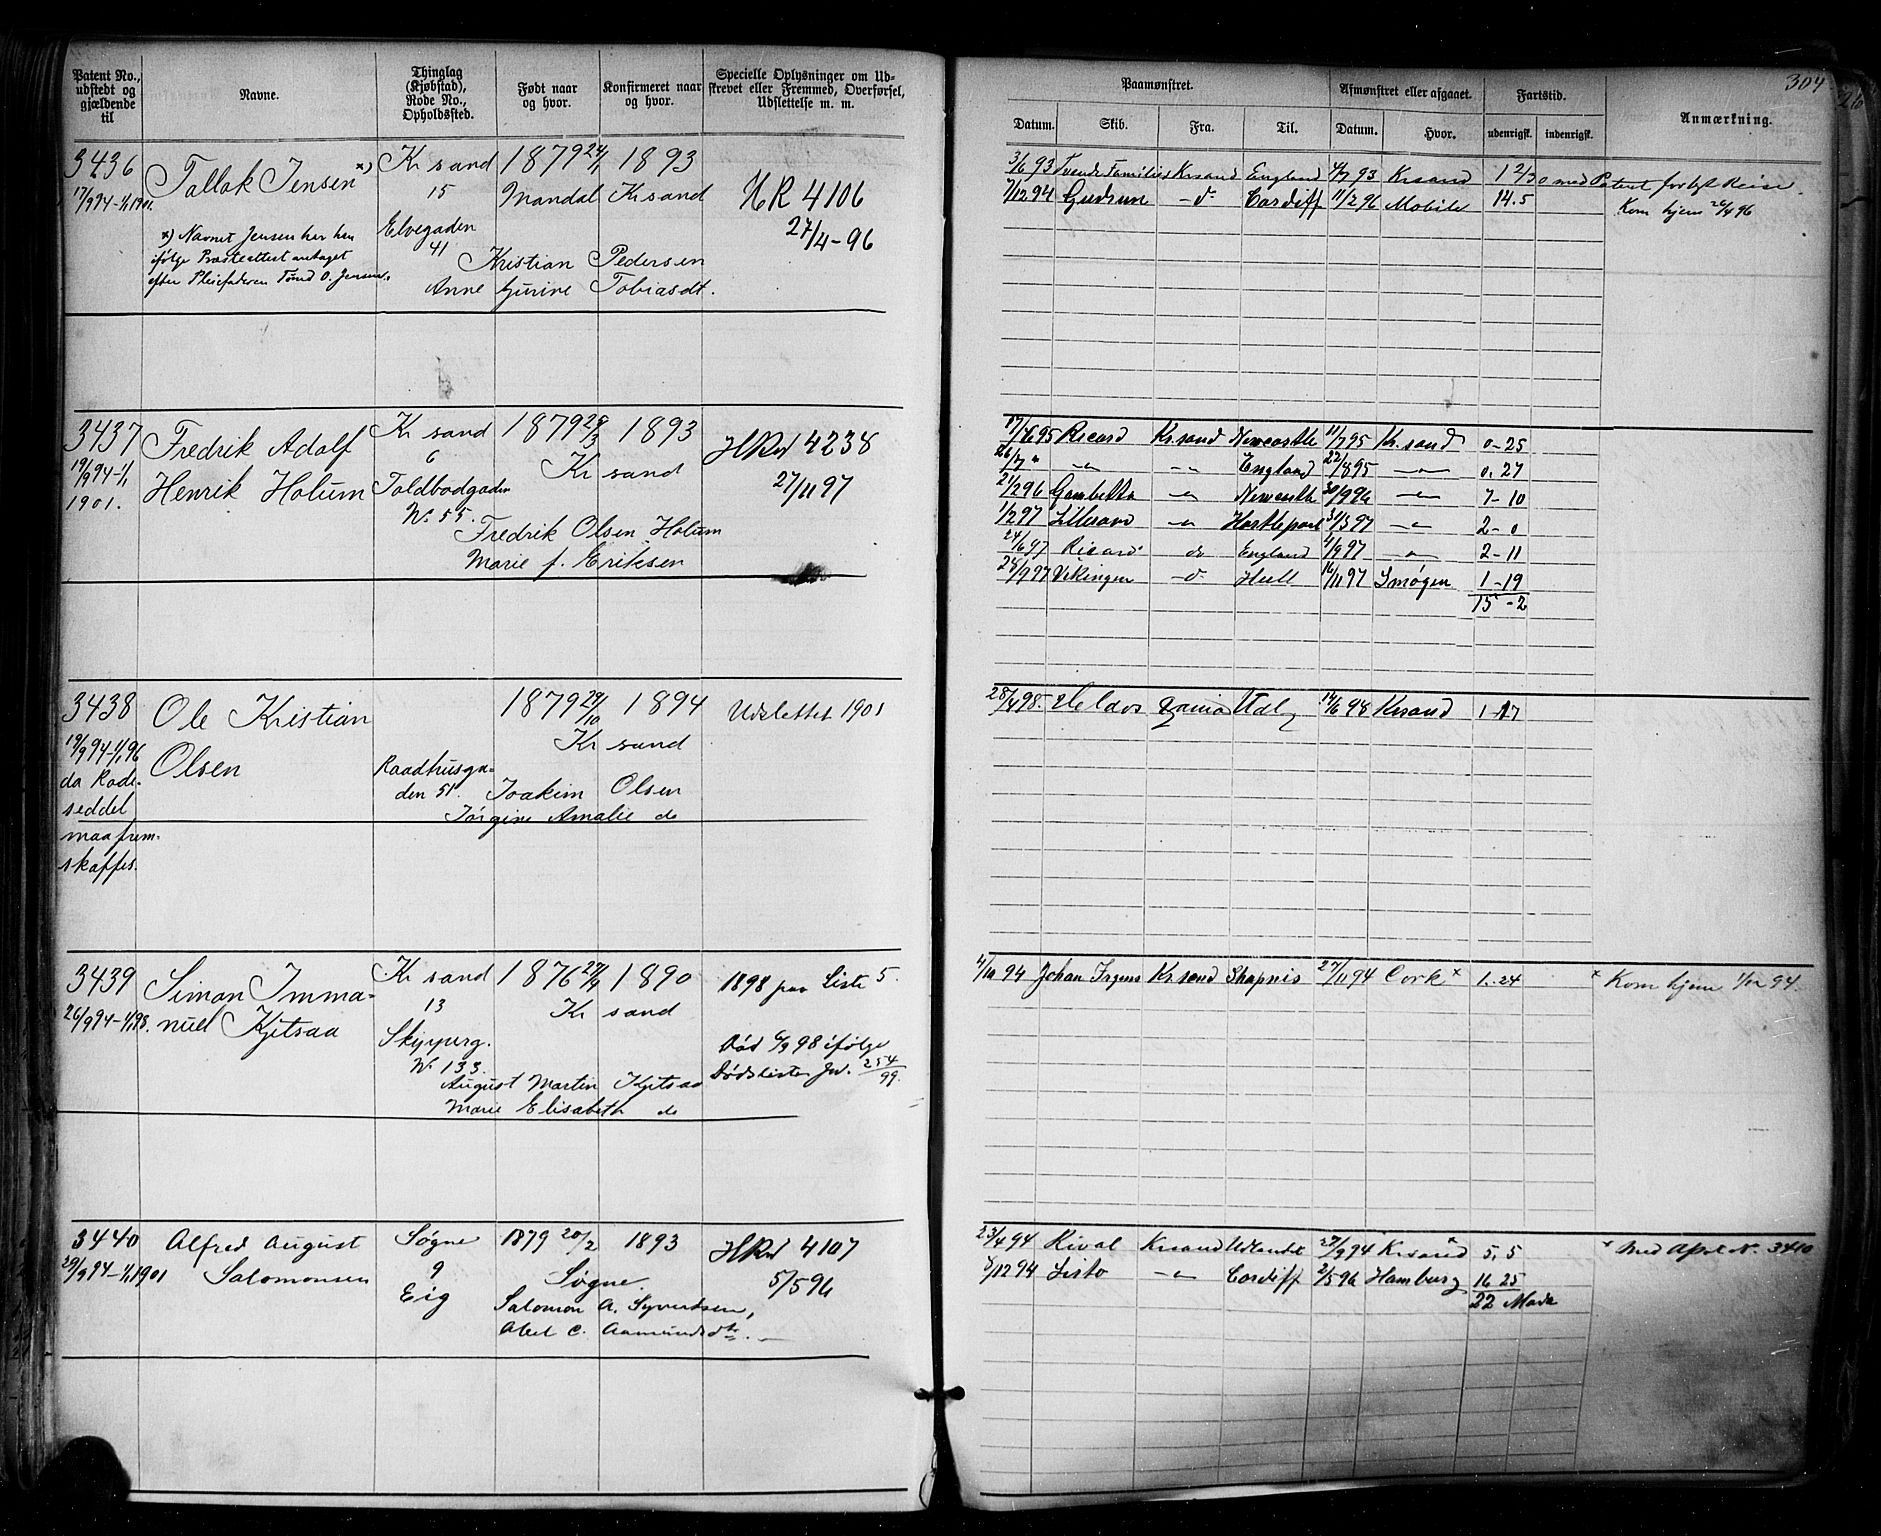 Patent No., udstedt og gjældende til
Navne.
Thinglag (Kjøbstad), Rode No., Opholdssted.
Født naar og hvor.
Konfirmeret naar og hvor.
Specielle Oplysninger om Udskrevet eller Fremmed, Overførsel, Udslettelse m. m.
Paamønstret.
Afmønstret eller afgaaet.
Fartstid.
Anmærkning.
304
Datum. Skib. Fra. Til. Datum. Hvor. udenrigsk. indenrigsk.
3436
17/9 94 - 1/1 1901.
Tallak Jensen x)
x) Navnet Jensen har han
ifølge Præsteattest antaget
efter Pleiefaderen Tønd O. Jensen.
Kr sand
15
Elvegaden
41
1879 24/1 1893
Mandal Kr sand
Kristian Pedersen
Anne Gurine Tobiasdt.
HR 4106
27/4 - 96
3/6 93 Tvende Familier Krsand England 93 Krsand
7/12 94 Gudrun - d. Cardiff 11/2 96 Mobile 14.5
med Patent for 1ste Reise.
Kom hjem 26/4 96
3437
19/9 94 - 1/1
1901.
Fredrik Adolf
Henrik Holum
Kr sand
6
Toldbodgaden
No. 55.
1879 29/3 1893
Kr sand
Fredrik Olsen Holum
Marie f. Eriksen
HRd 4238
27/11 97
17/6 95 Ricard Kr sand Newcastle 11/7 95 Kr. sand 0 - 25
26/7 " - " - - " - England 22/8 95 - " - 0. 27
21/2 96 Gambetta - " - Newcastle 30/9 96 - " - 7 - 10
1/2 97 Lillesand - " - Hartlepool 31/3 97 - " - 2 - 0
24/6 97 Ricard do England 4/9 97 - " - 2 - 11
28/9 97 Vikingen - d. Hull 16/11 97 Smøgen 1 - 19
15 - 2
3438
19/9 94 - 1/1 96
da Rode-
seddel
maa frem-
skaffes.
Ole Kristian
Olsen
Raadhusga-
den 51.
1879 29/10 1894
Kr sand
Joakim Olsen
Jørgine Amalie do
Udslettet 1901
28/4 98. 14/6 98 Krsand 1 - 17
3439
26/9 94 - 1/1 98.
Simon Imma-
nuel Kjetsaa
Kr sand
13
Skipperg.
No. 133.
1876 27/9 1890
Kr sand
August Martin Kjetsaa
Marie Elisabeth do
1898 paa Liste 5.
Død 6/9 98 ifølge
Dødsliste Jn. 254/99.
4/10 94 Johan Irgens Kr sand 27/11 94 Cork x 1. 24
x Kom hjem 1/12 94.
3440
29/9 94 - 1/1 1901
Alfred August
Salomonsen
Søgne
9
Eig
1879 20/2 1893
Søgne
Salomon A. Syvertsen,
Abel C. Aamundsdtr. -
HRd 4107
5/5 96
23/4 94 Rival Krsand Udlandet 27/9 94 Krsand x 5. 5
5/12 94 Lista - " - Cardiff 2/5 96 Hamburg 16 25
22 Mdr
x Med Apat N. 3410